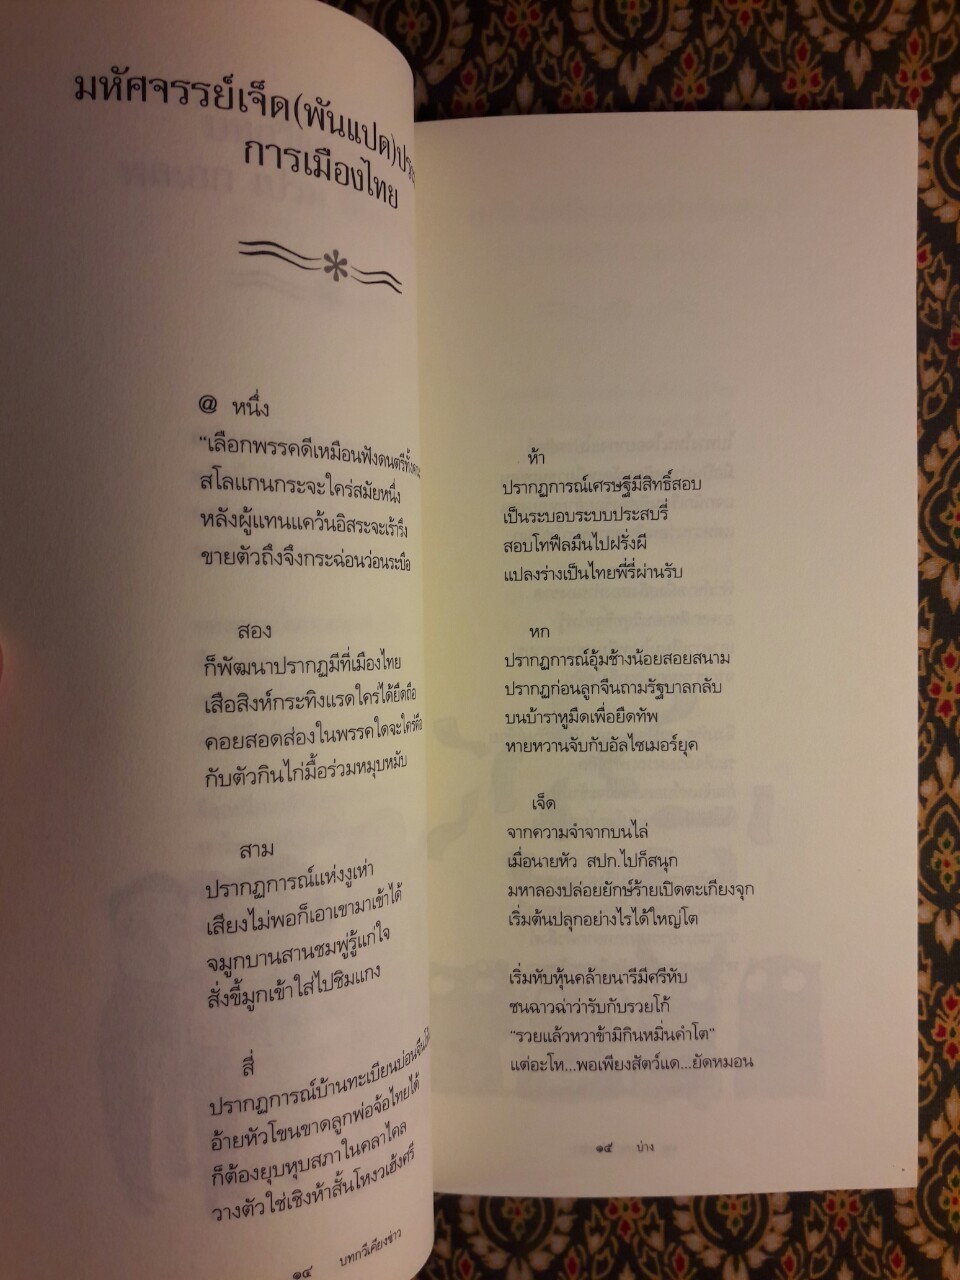 มหัศจรรย์เจ็ด(พันแปด)
การเมืองไทย
@ หนึ่ง
“เลือกพรรคดีเหมือนฟังดนตรี
สโลแกนกระจะใคร่สมัยหนึ่ง
หลังผู้แทนแคว้นอิสระจะเร้ารึง
ขายตัวถึงจึงกระฉ่อนว่อนระบือ
สอง
ก็พัฒนาปรากฏมีที่เมืองไทย
เสือสิงห์กระทิงแรดใครได้ยึดถือ
คอยสอดส่องในพรรคใดจะใคร่คือ
กับตัวกินไก่มื้อร่วมหมุบหมับ
สาม
ปรากฏการณ์แห่งงูเห่า
เสียงไม่พอก็เอาเขามาเข้าได้
จมูกบานสานชมพู่รู้แก่ใจ
สั่งขี้มูกเข้าใส่ไปชิมแกง
สี่
ปรากฏการณ์บ้านทะเบียนบ่อนจีน
อ้ายหัวโขนขาดลูกพ่อจ้อไทยได้
ก็ต้องยุบหุบสภาในคลาไคล
วางตัวใช่เชิงห้าสั้นโหงวเฮ้งศรี
๑๔ บทกวีเคียงข่าว
ห้า
ปรากฏการณ์เศรษฐีมีสิทธิ์สอบ
เป็นระบอบระบบประสบรี่
สอบโทฟืลมึนไปฝรั่งผี
แปลงร่างเป็นไทยพี่รี่ผ่านรับ
หก
ปรากฏการณ์อุ้มช้างน้อยสอยสนาม
ปรากฏก่อนลูกจีนถามรัฐบาลกลับ
บนบ้าราหูมืดเพื่อยืดทัพ
หายหวานจับกับอัลไซเมอร์ยุค
เจ็ด
จากความจำจากบนไล่
เมื่อนายหัว สปก.ไปก็สนุก
มหาลองปล่อยยักษ์ร้ายเปิดตะเกียงจุก
เริ่มต้นปลุกอย่างไรได้ใหญ่โต
เริ่มหับหุ้นคล้ายนารีมีศรีหับ
ชนฉาวฉ่าว่ารับกับรวยโก้
“รวยแล้วหวาข้ามิกินหมิ่นคำโต”
แต่อะโห...พอเพียงสัตว์แด...ยัดหมอน
๑๕ บ่าง